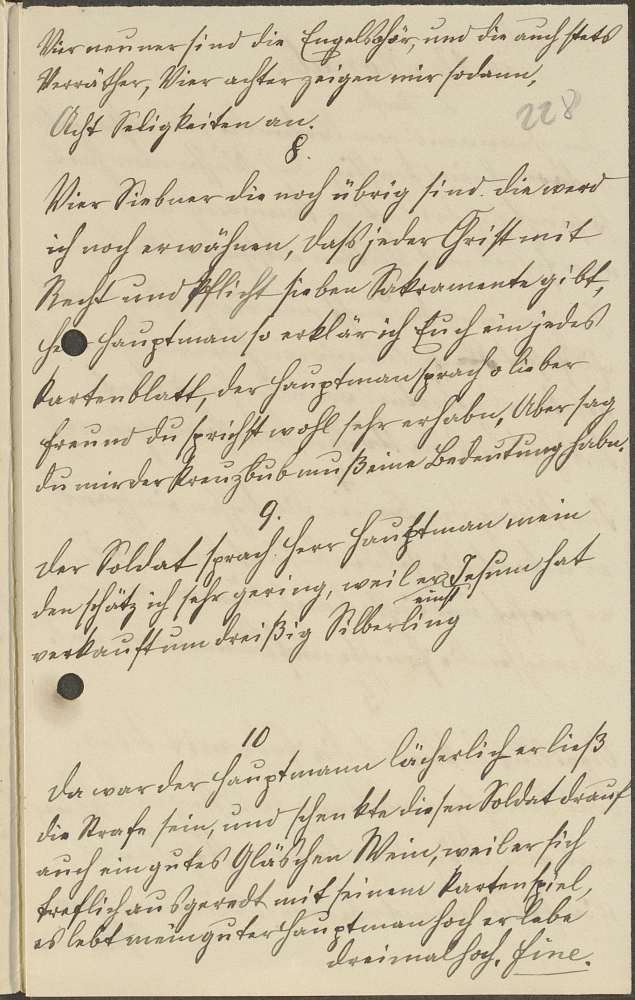 Vier neuner sind die Engelschör, und die auch stets
Verräther, Vier achter zeigen mir sodann,
Acht Seligkeiten an.
228
8.
Vier Siebner die noch übrig sind. die werd
ich noch erwähnen, daß jeder Christ mit
Recht und Pflicht sieben Sakramente gibt,
Hauptman so erklär ich Euch ein jedes
Kartenblatt, der Hauptman sprach o lieber
freund du sprichst wohl sehr erhabn, Aber sag
du mir der Kreuzbub muß eine Bedeutung habn.
9.
Der Soldat sprach. Herr Hauptman mein
den schätz ich sehr gering, weil er Jesum hat
einst
verkauft um dreißig Silberling
10
Da war der Hauptmann lächerlich erließ
die Strafe sein, und schenkte diesen Soldat drauf
auch ein gutes Gläschen Wein, weil er sich
treflich ausgeredt mit seinem Kartenspiel,
es lebt mein guter Hauptman hoch er lebe
dreimal hoch. fine.